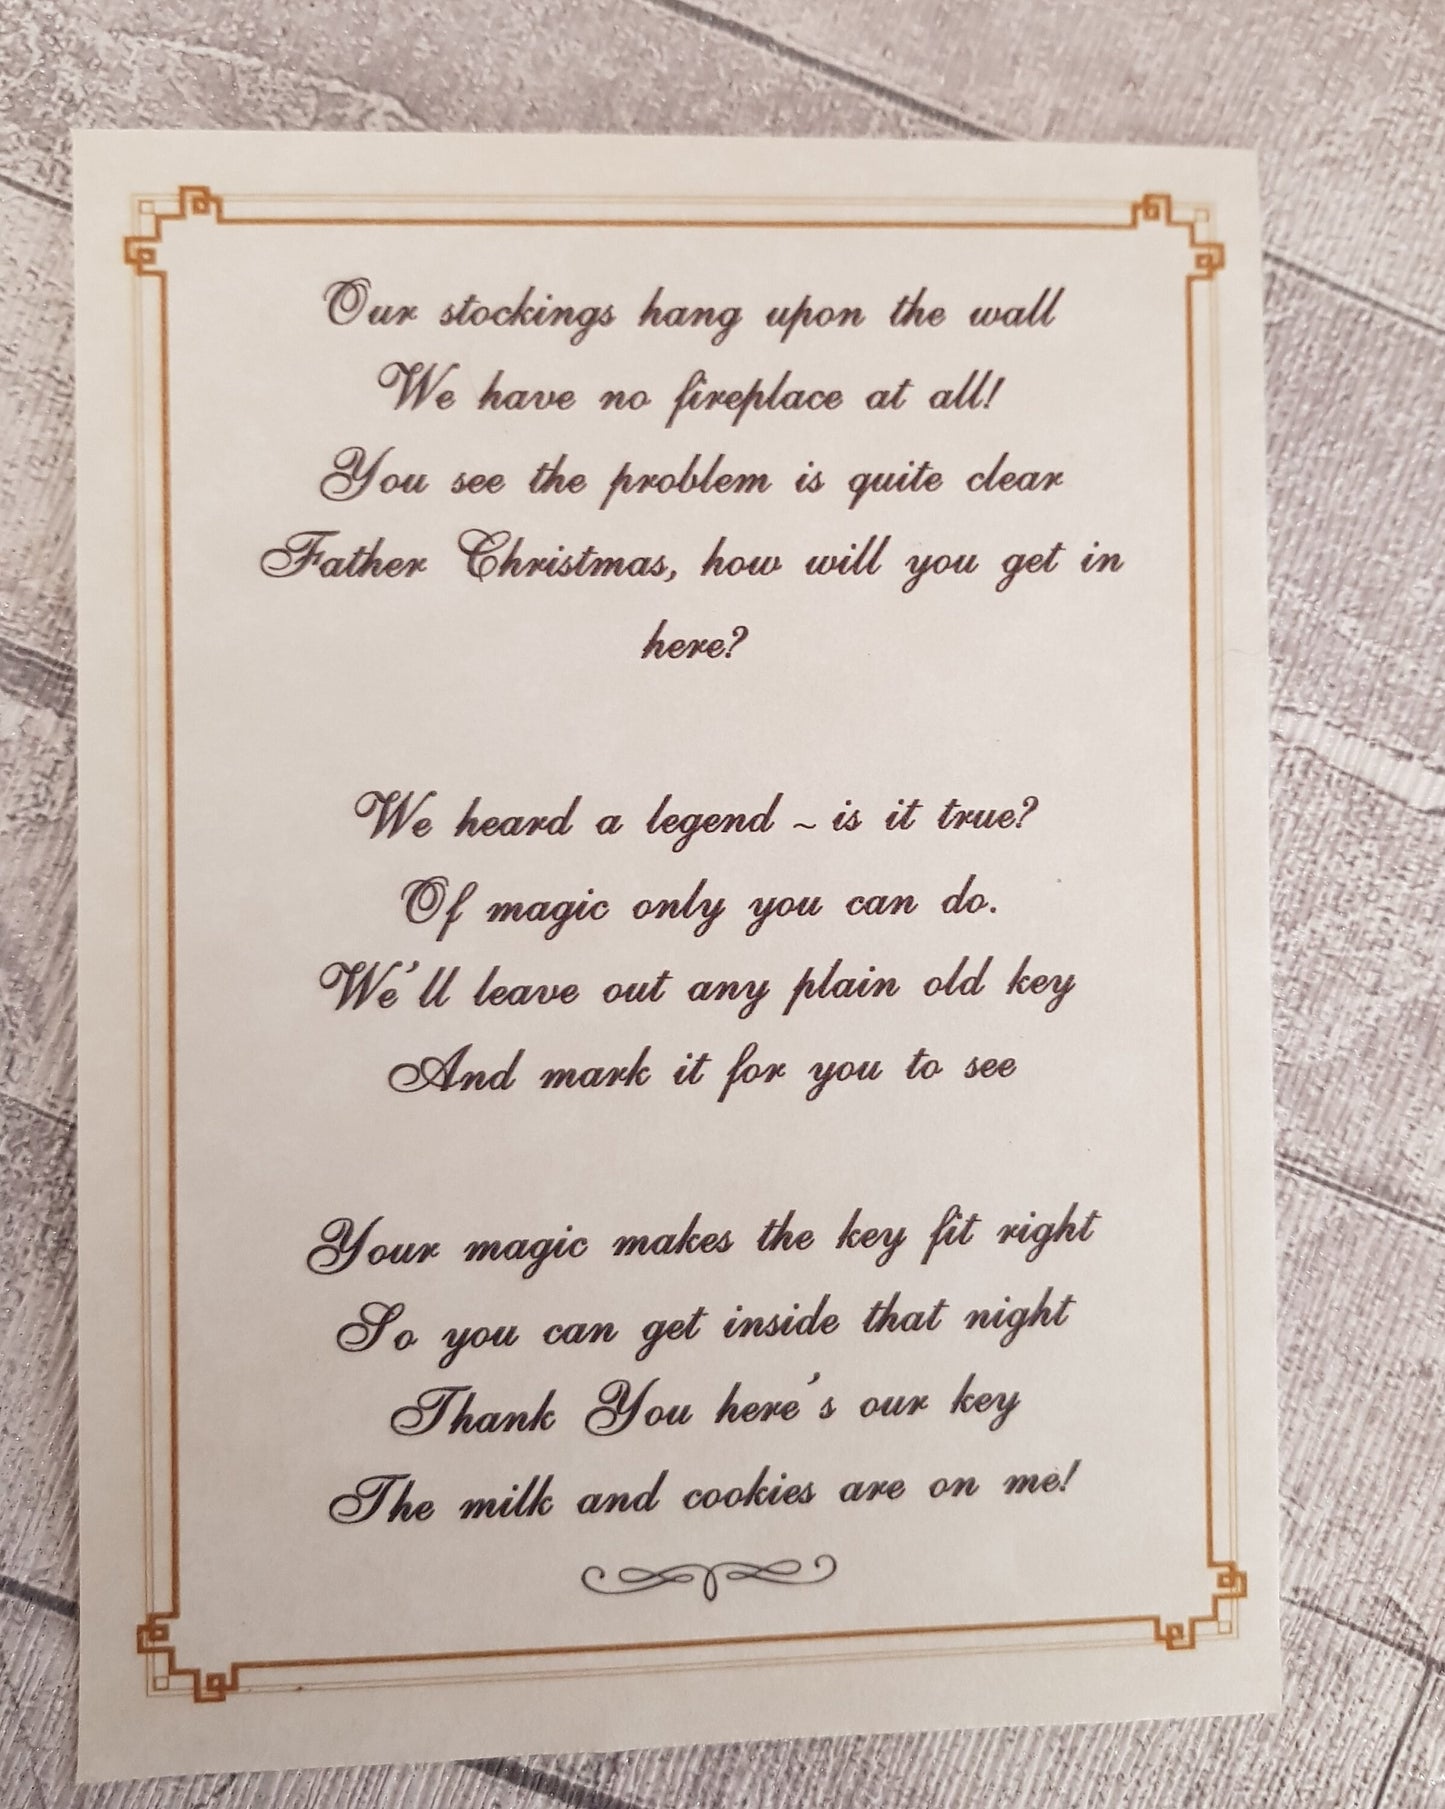 Our stockings hang upon the wall
We have no fireplace at all!
You see the problem is quite clear
Father Christmas, how will you get in
here?
We heard a legend ~ is it true?
Of magic only you can do.
We'll leave out any plain old key
And mark it for you to see
Your magic makes the key fit right
So you can get inside that night
Thank You here's our key
The milk and cookies are on me!